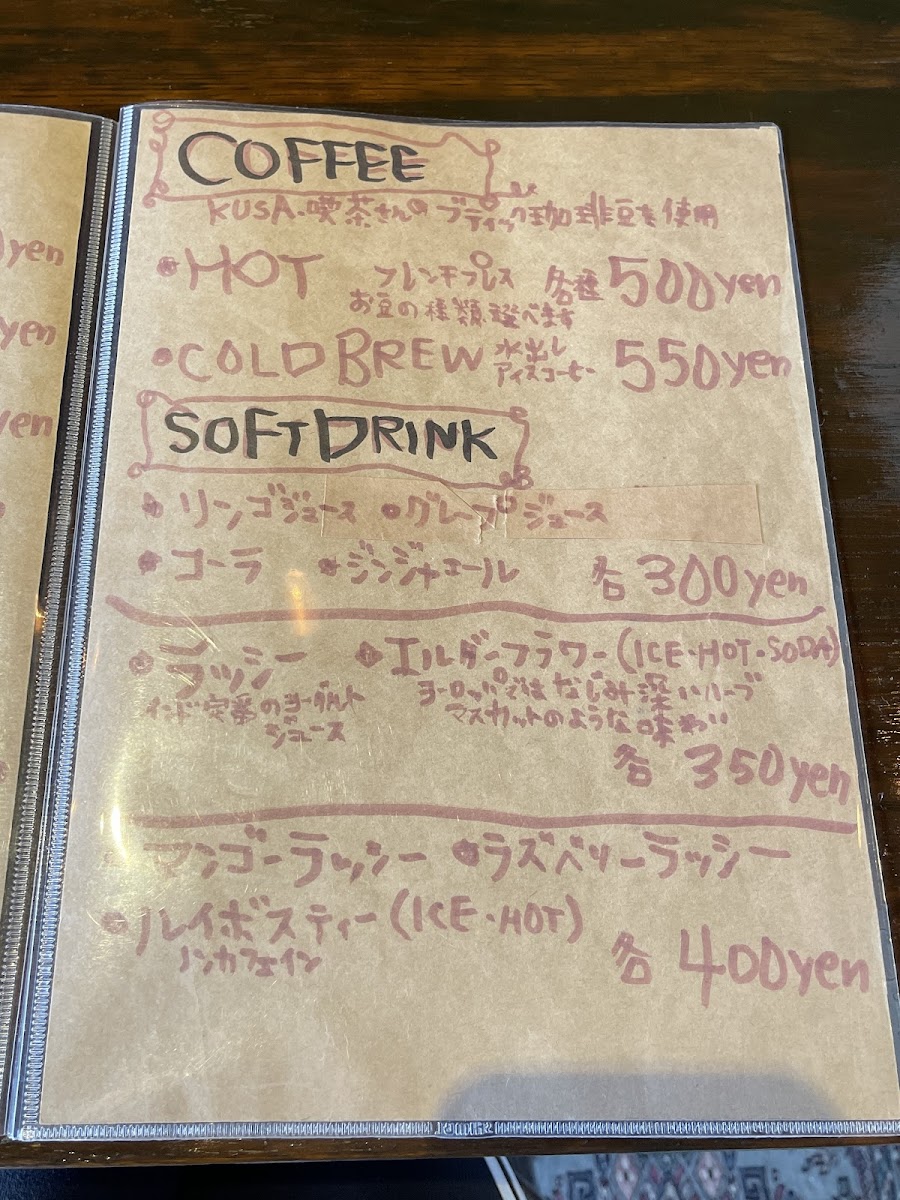 COFFEE
KUSA.喫茶さんのブティック珈琲豆を使用
HOT フレンチプレス 各種 500yen
お豆の種類選べます
COLD BREW 水出し 550yen
アイスコーヒー
SOFT DRINK
リンゴジュース グレープジュース
コーラ ジンジャエール 各300yen
ラッシー エルダーフラワー(ICE・HOT・SODA)
インド定番のヨーグルト ヨーロッパではなじみ深いハーブ
ジュース マスカットのような味わい
各 350yen
マンゴーラッシー ラズベリーラッシー
ルイボスティー(ICE・HOT)
ノンカフェイン 各 400yen
yen
yen
yen